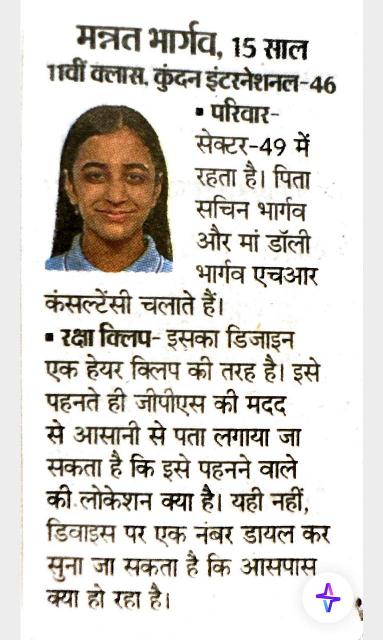 मन्नत भार्गव, 15 साल
11वीं क्लास, कुंदन इंटरनेशनल-46
▪ परिवार-
सेक्टर-49 में
रहता है। पिता
सचिन भार्गव
और मां डॉली
भार्गव एचआर
कंसल्टेंसी चलाते हैं।
▪ रक्षा क्लिप- इसका डिजाइन
एक हेयर क्लिप की तरह है। इसे
पहनते ही जीपीएस की मदद
से आसानी से पता लगाया जा
सकता है कि इसे पहनने वाले
की लोकेशन क्या है। यही नहीं,
डिवाइस पर एक नंबर डायल कर
सुना जा सकता है कि आसपास
क्या हो रहा है।